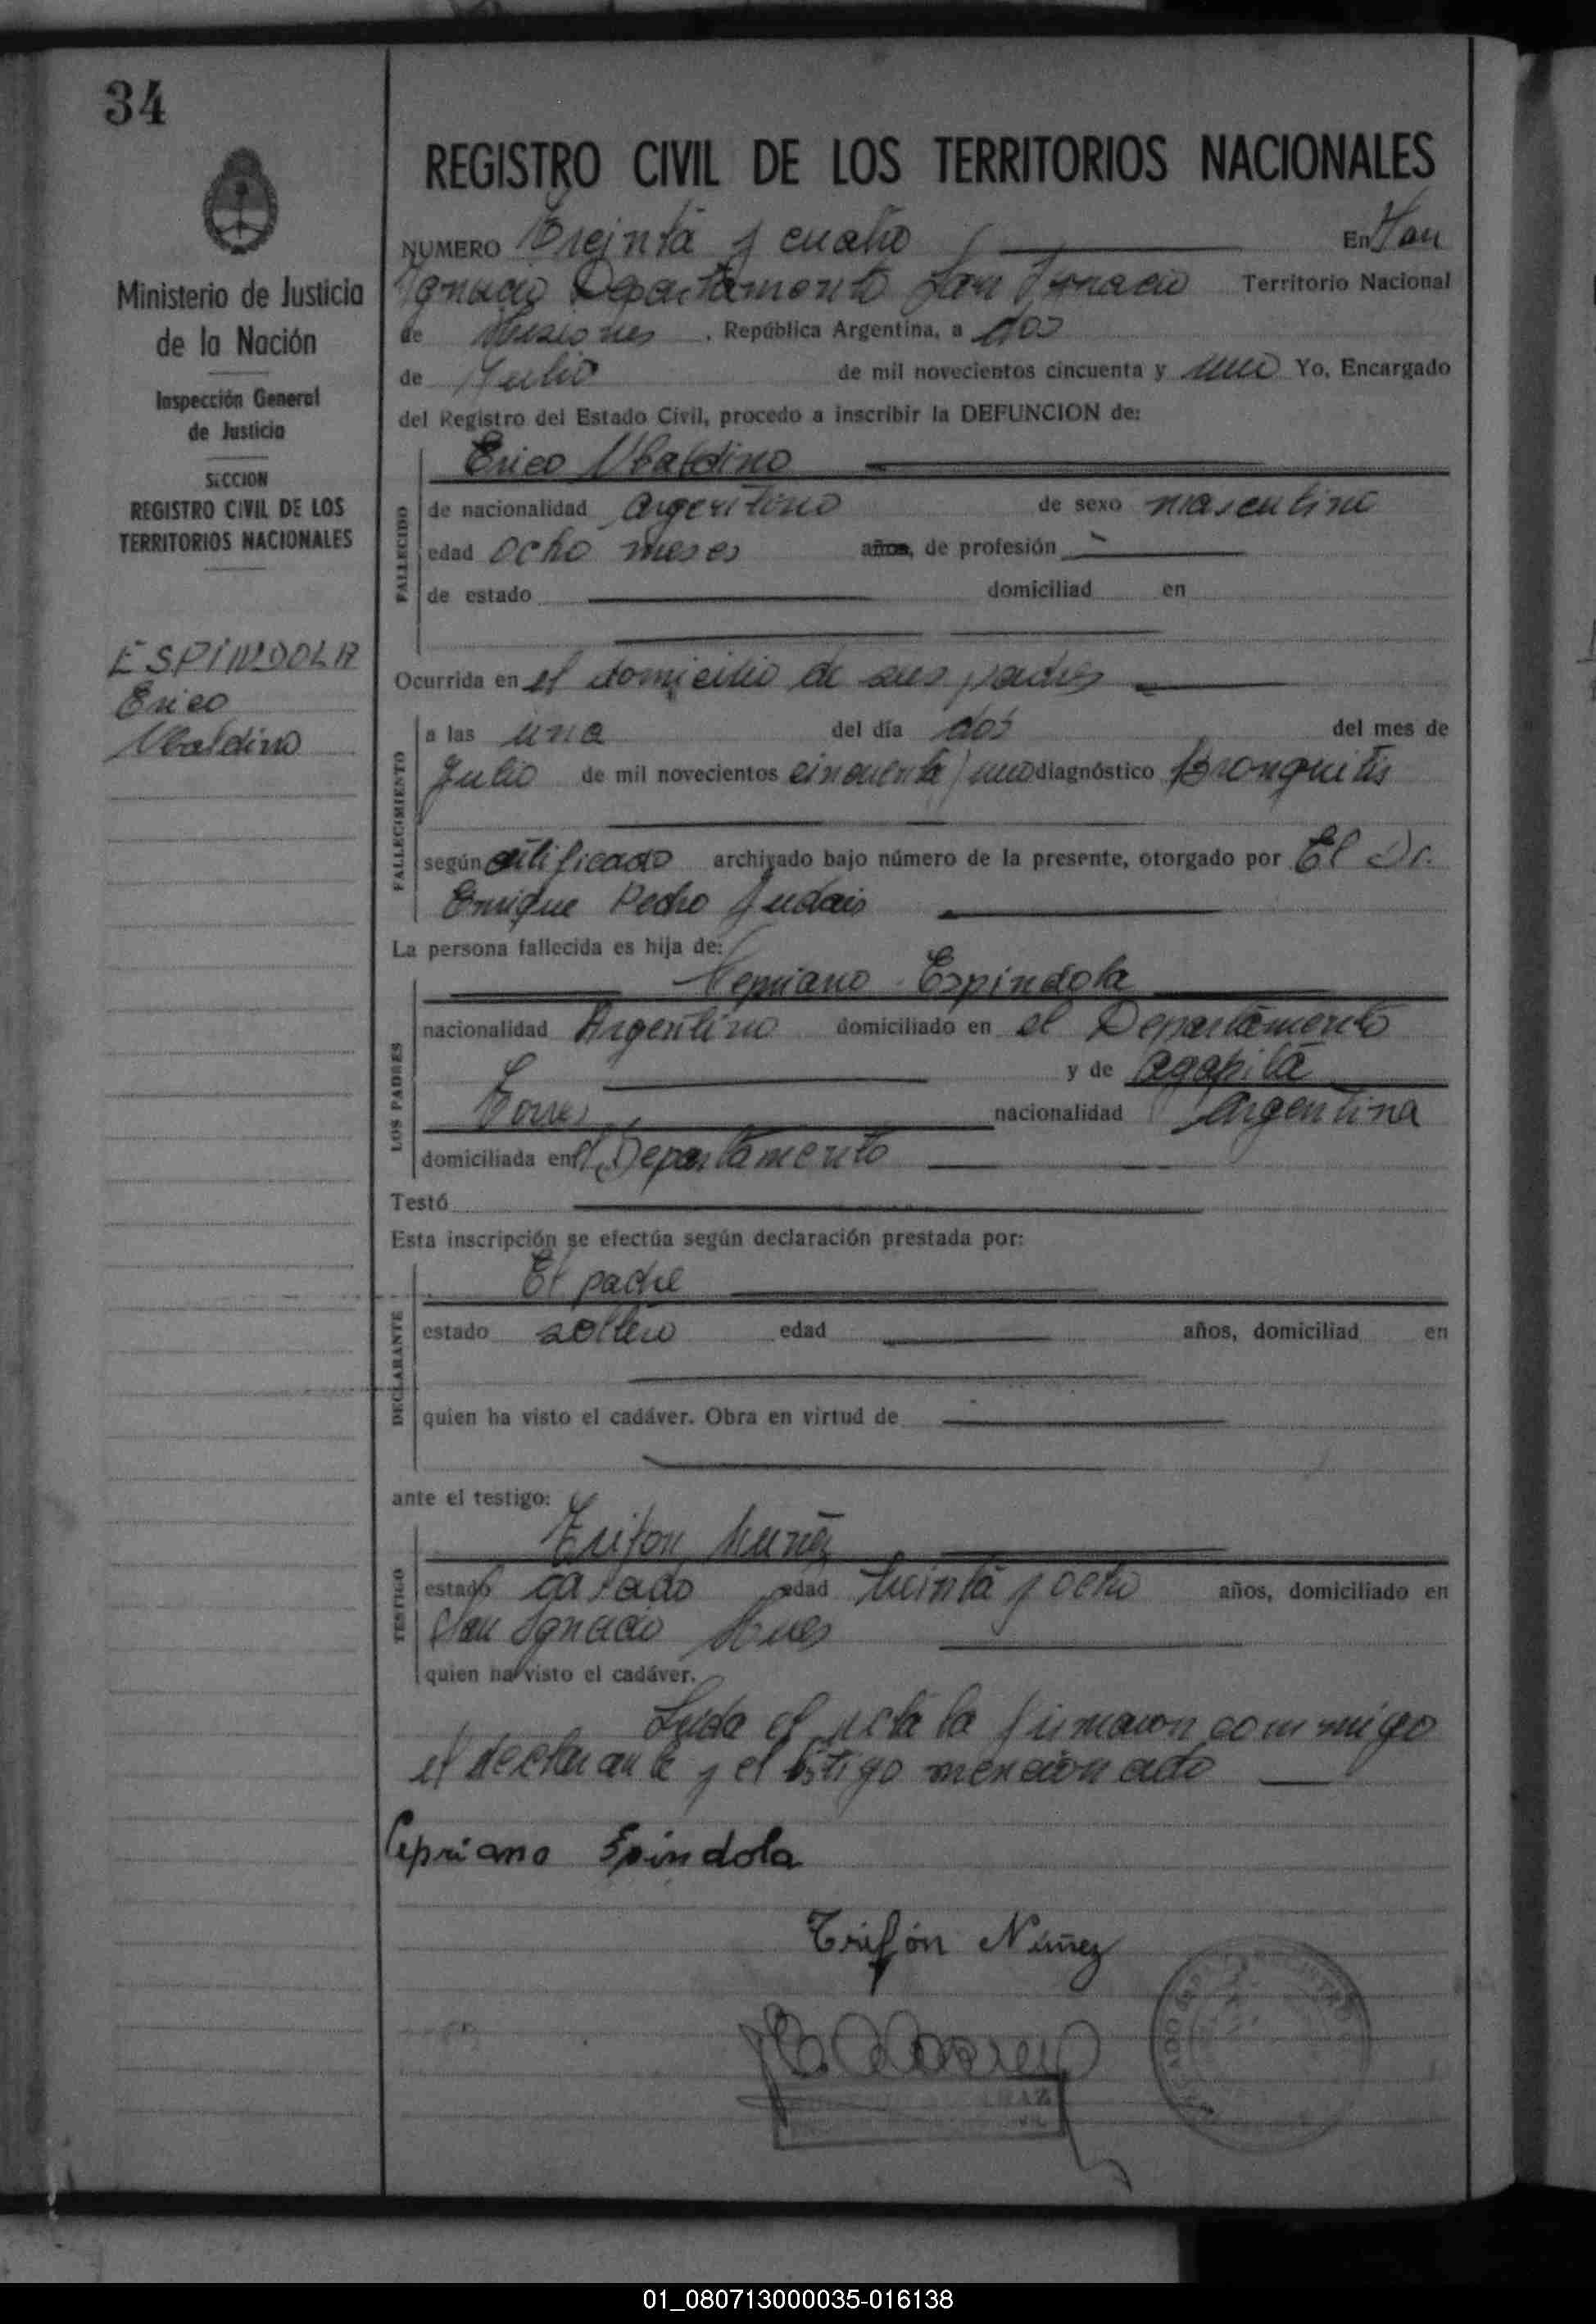 34
REGISTRO CIVIL DE LOS TERRITORIOS NACIONALES
Ministerio de Justicia
de la Nación
Inspección General
de Justicia
SECCION
REGISTRO CIVIL DE LOS
TERRITORIOS NACIONALES
ESPINDOLA
Erico
Ubaldino
NUMERO Treinta y cuatro En San
Ignacio Departamento San Ignacio Territorio Nacional
de Misiones , República Argentina, a dos
de Julio de mil novecientos cincuenta y uno Yo, Encargado
del Registro del Estado Civil, procedo a inscribir la DEFUNCION de:
Erico Ubaldino
FALLECIDO
de nacionalidad Argentino de sexo masculino
edad ocho meses años, de profesión
de estado domiciliad en
Ocurrida en el domicilio de sus padres
FALLECIMIENTO
a las una del día dos del mes de
Julio de mil novecientos cincuenta y uno diagnóstico Bronquitis
según certificado archivado bajo número de la presente, otorgado por El Dr.
Enrique Pedro
La persona fallecida es hija de:
LOS PADRES
Cepriano Espindola
nacionalidad Argentino domiciliado en el Departamento
y de Agapita
Torres nacionalidad Argentina
domiciliada en el Departamento
Testó
Esta inscripción se efectúa según declaración prestada por:
DECLARANTE
El padre
estado soltero edad años, domiciliad en
quien ha visto el cadáver. Obra en virtud de
ante el testigo:
TESTIGO
Trifon Nuñez
estado casado edad treinta y ocho años, domiciliado en
San Ignacio
quien ha visto el cadáver.
Leida el acta la firmaron commigo
el declarante y el testigo mencionado
Cepriano Epindola
Trifón Núñez
01_080713000035-016138